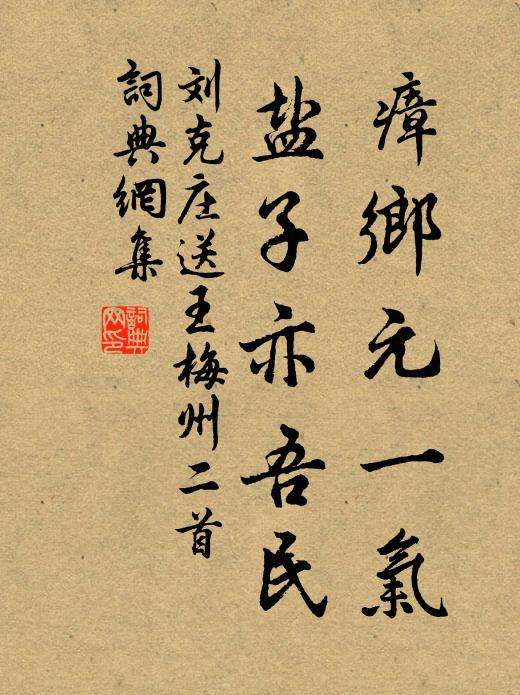 瘴鄉元一氣
盐子亦吾民
刘克庄送王梅州二首
詞典網集
詞典网印